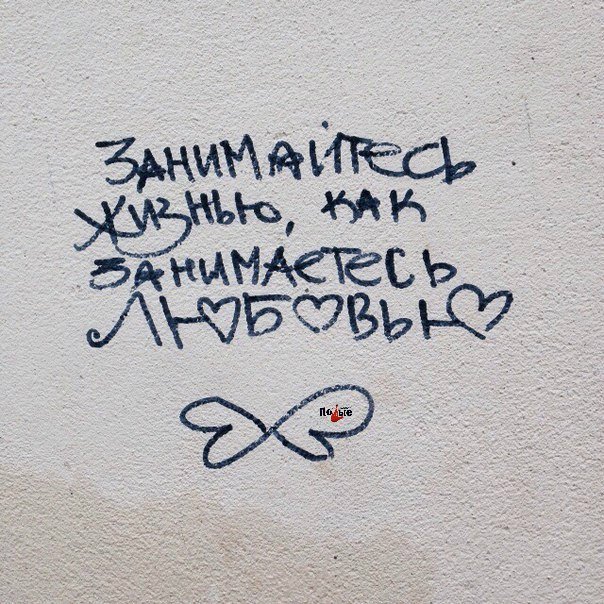 Занимайтесь
жизнью, как
занимаетесь
любовью